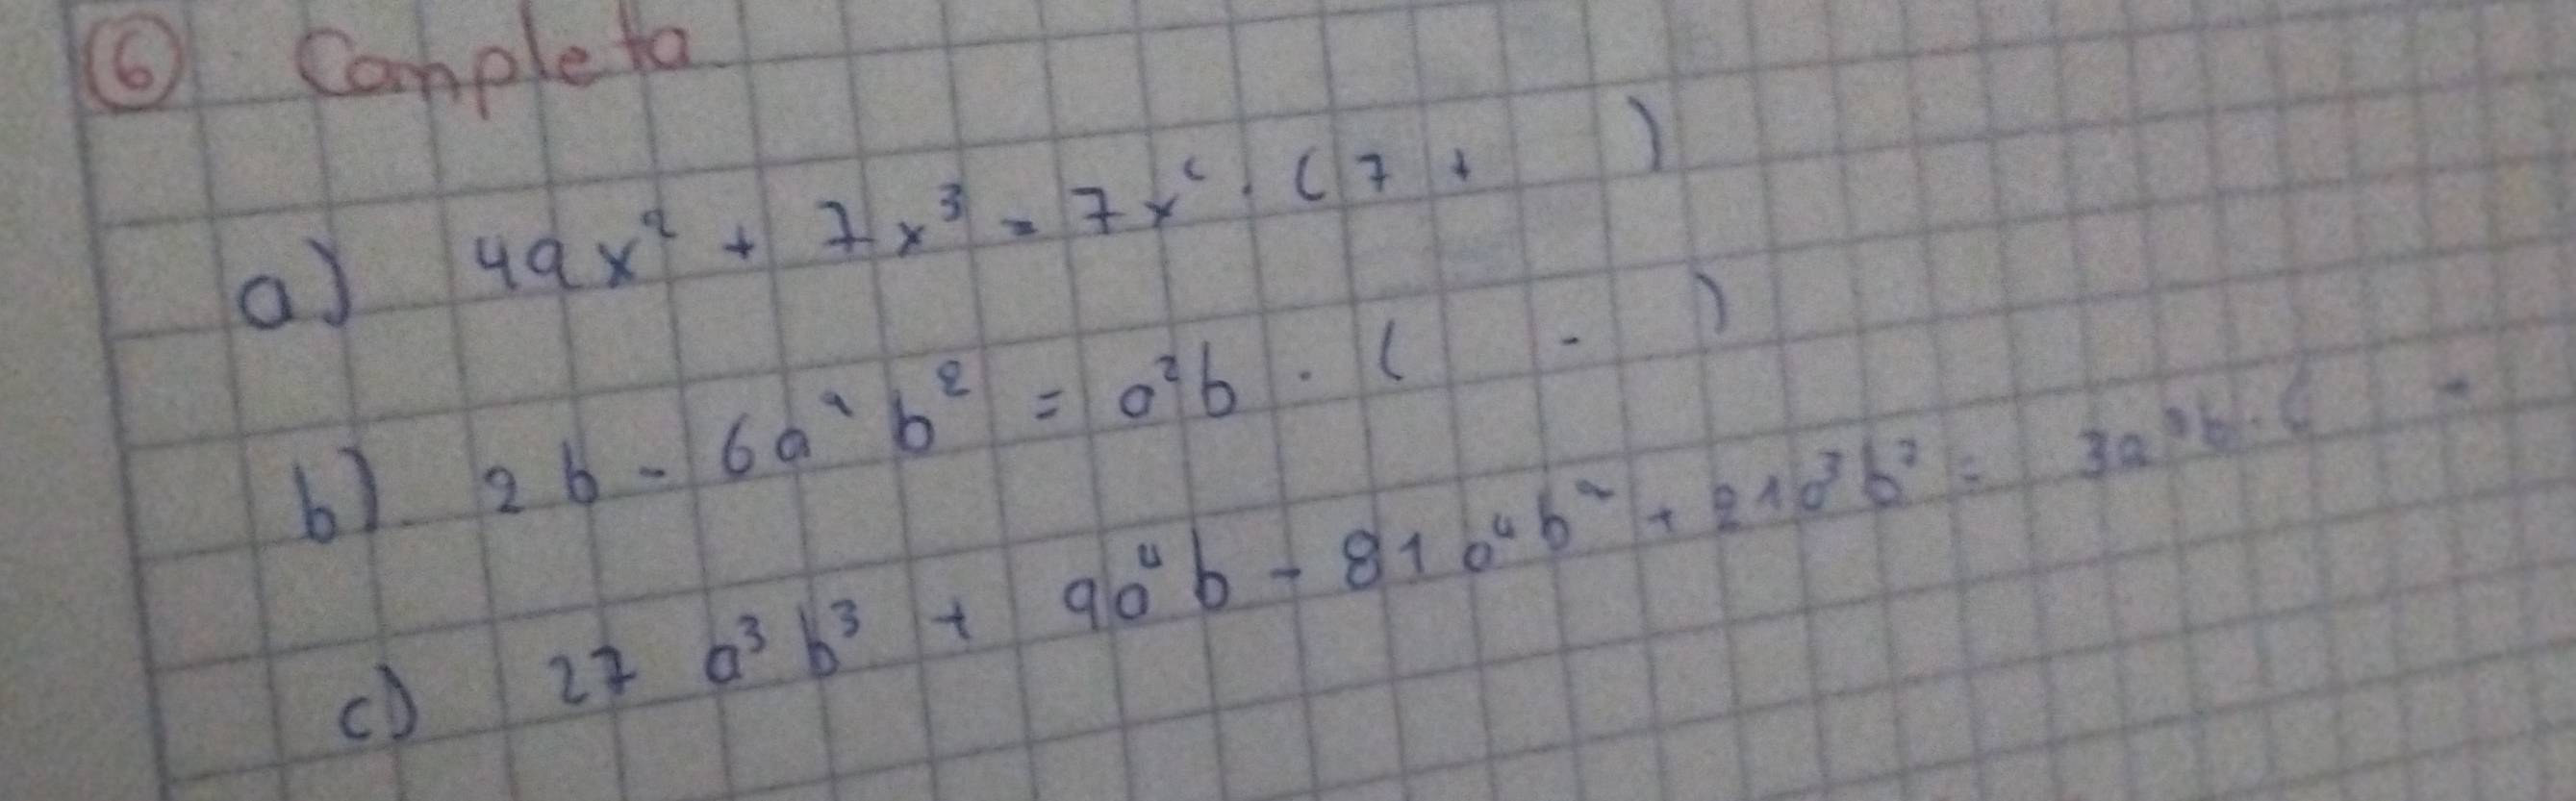 6 Completa
a) 49x² + 7x³ = 7x² · (7 + )
b) 2b - 6a² b² = a²b · ( - )
c) 27 a³ b³ + 9a⁴ b - 81a⁴ b² + 21a³ b² = 3a³b · ( -